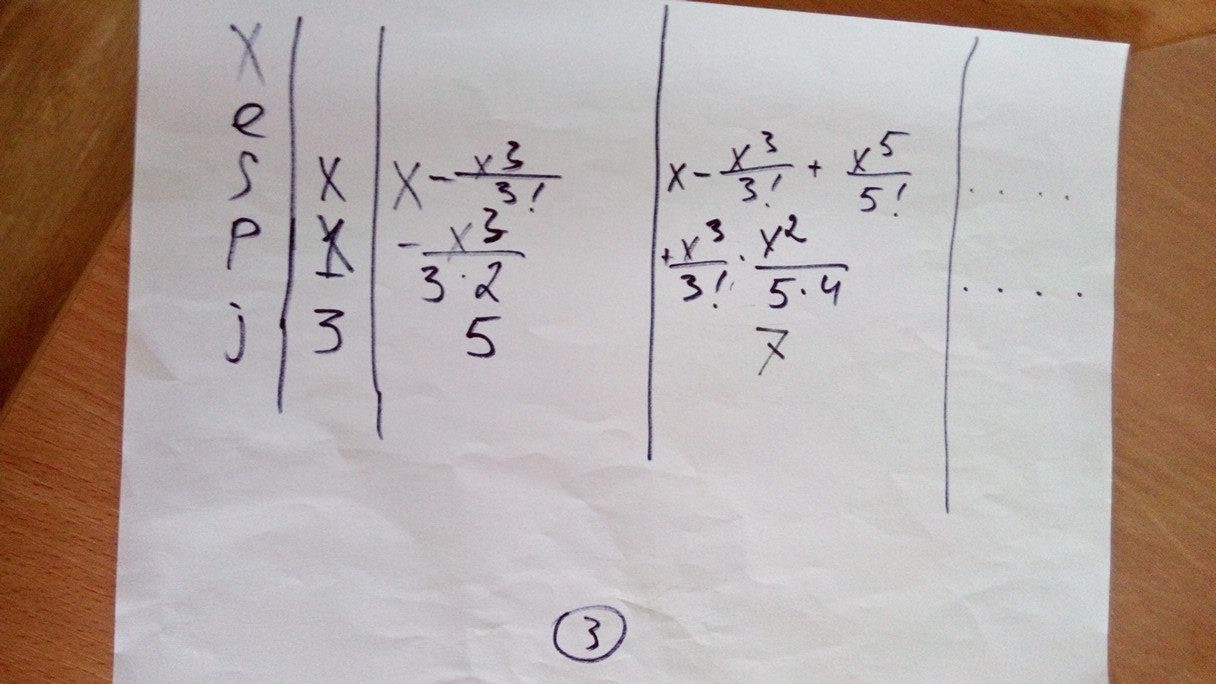 x
e
S x x - x³/3! x - x³/3! + x⁵/5! ....
P - x³/(3·2) + x³/3! · x²/(5·4) ....
j 3 5 7
3